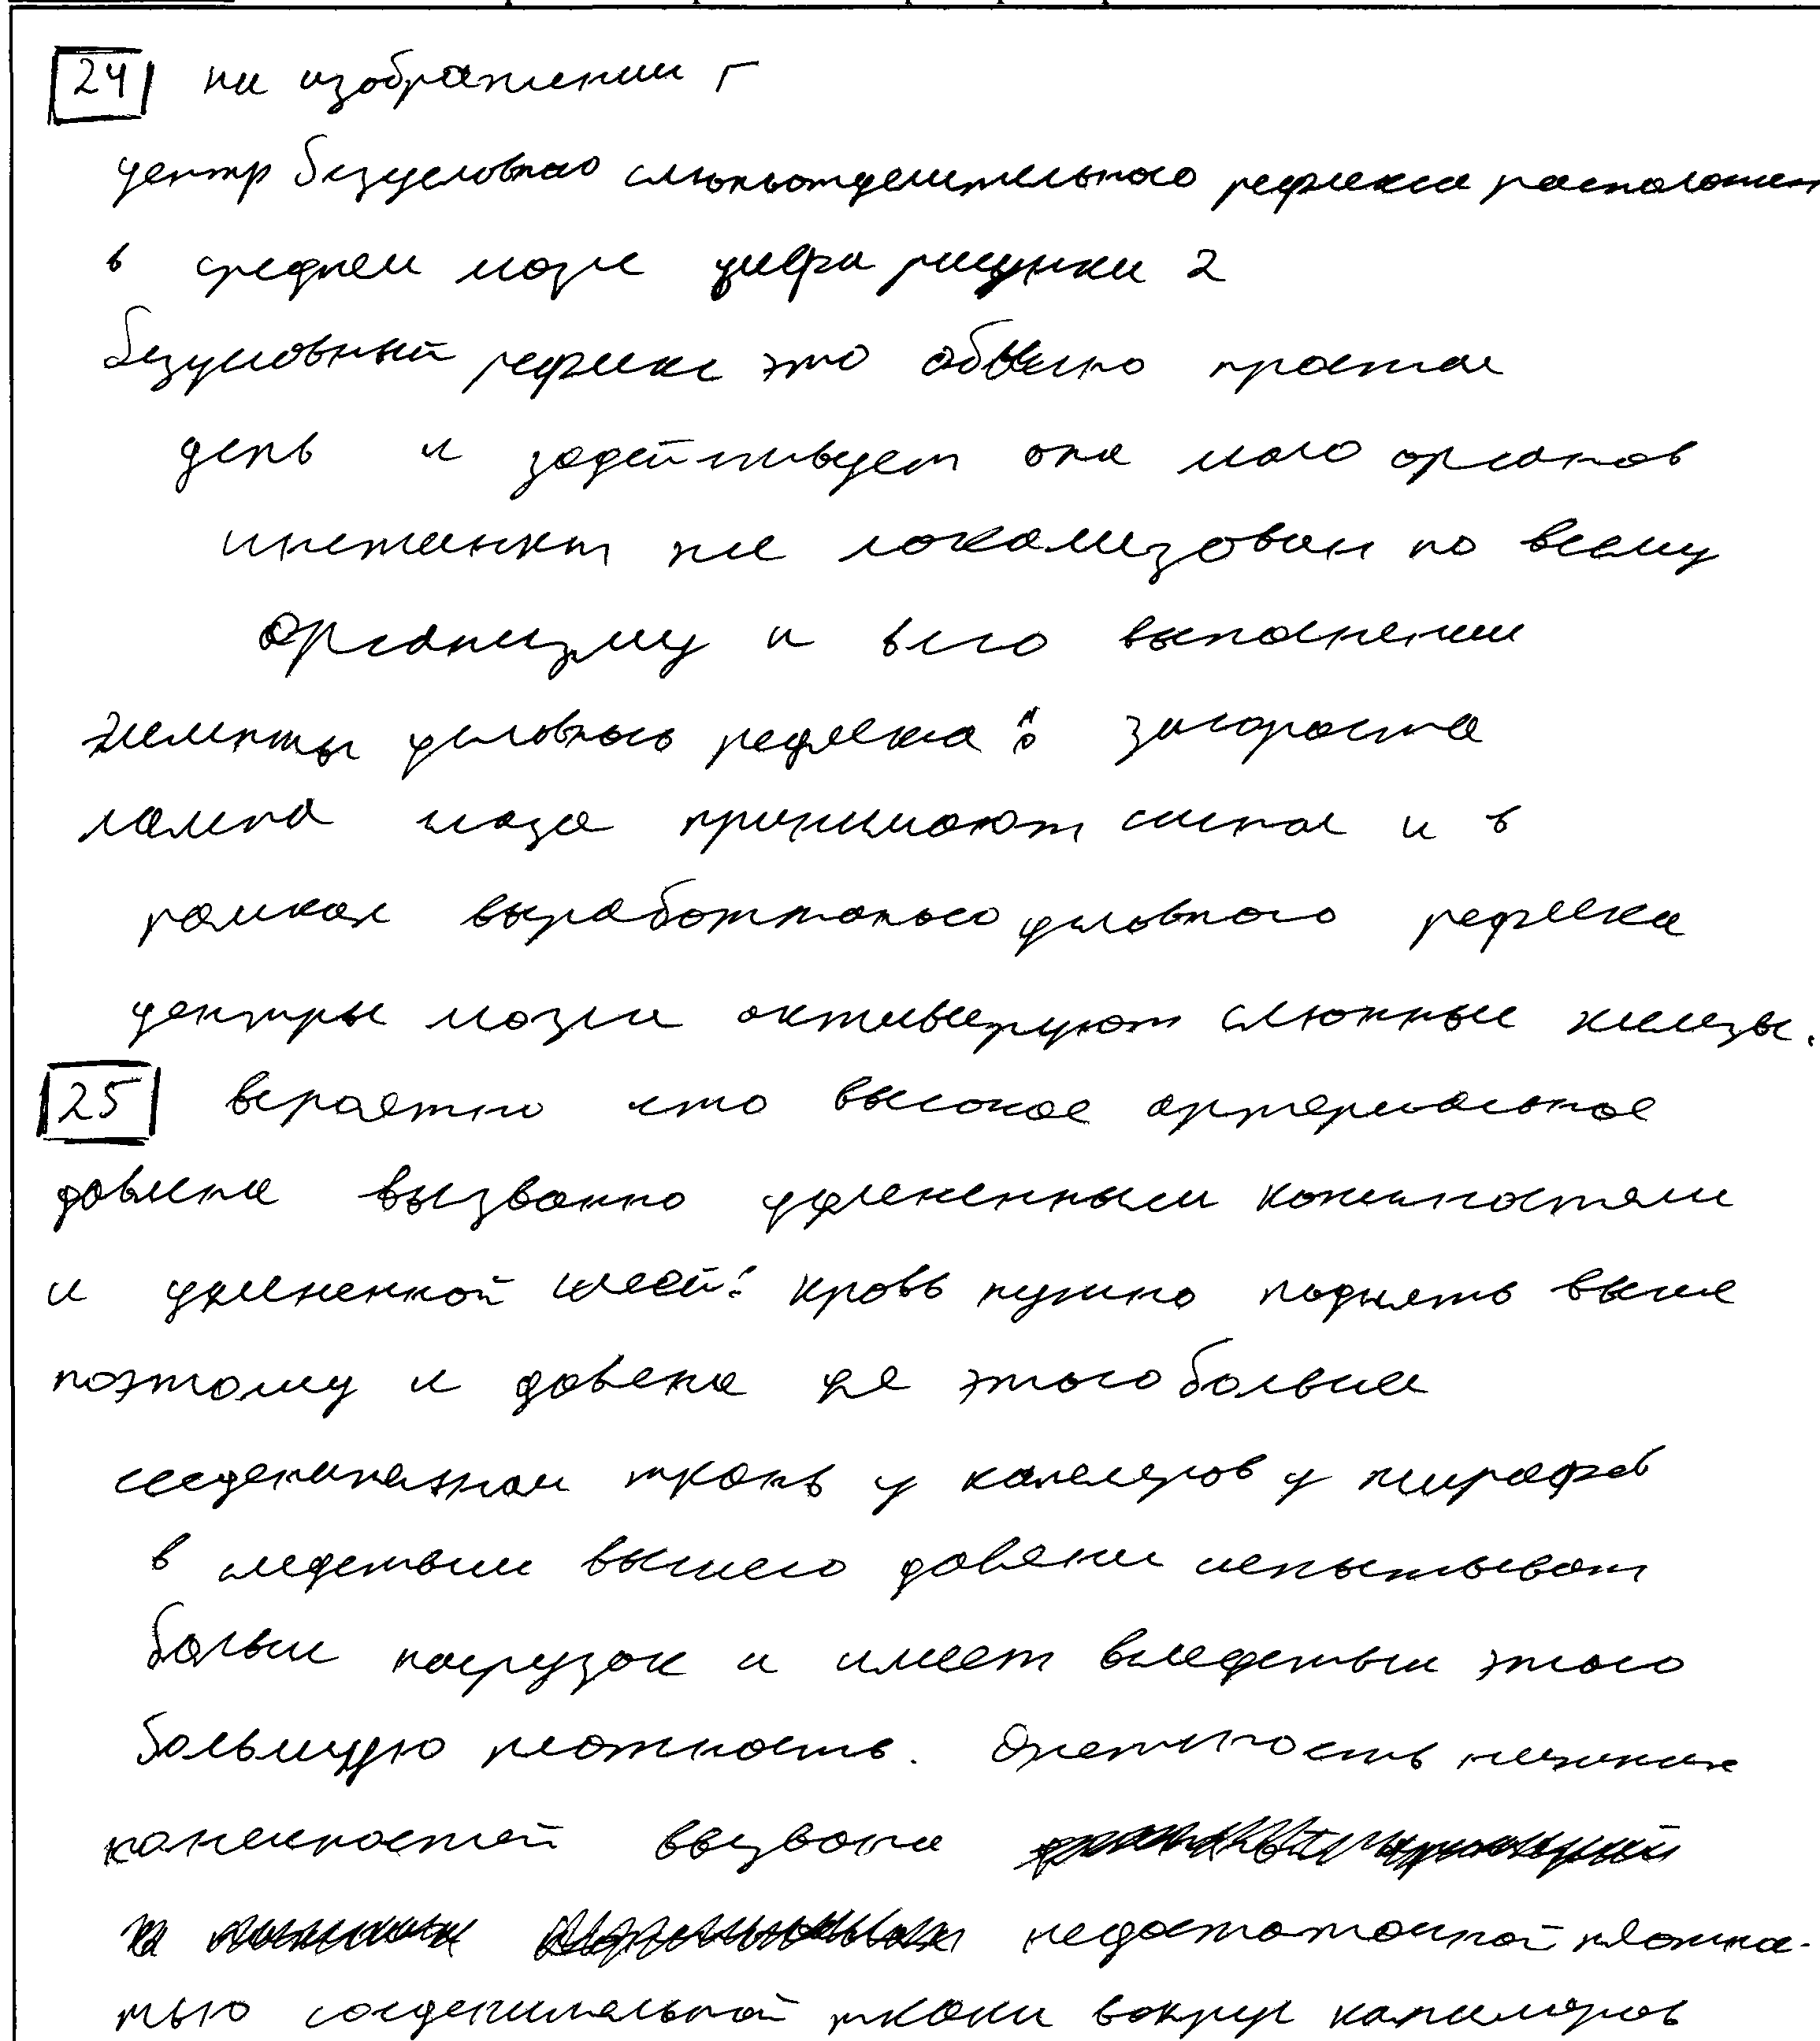 24 на изображении Г
центр безусловного слюноотделительного рефлекса расположен
в среднем мозге цифра рисунки 2
безусловный рефлекс это обычно простая
цепь и задействует она мало органов
инстинкт же локализован по всему
организму и в его выполнении
элементы условного рефлекса: загорается
лампа глаза принимают сигнал и в
рамках выработанного условного рефлекса
центры мозга активируют слюнные железы.
25 вероятно что высокое артериальное
давлени вызванно удлененными конечностями
и удлененной шеей: кровь нужно поднять выше
поэтому и давлени для этого больше
соеденительная ткань у капеляров у жирафов
в следствии высшего давлени испытывает
больше нагрузок и имеет вследствии этого
большую плотность. Отечность нижних
конечностей вызвана
недостаточной плотно-
тью соеденительной ткани вокруг капиляров